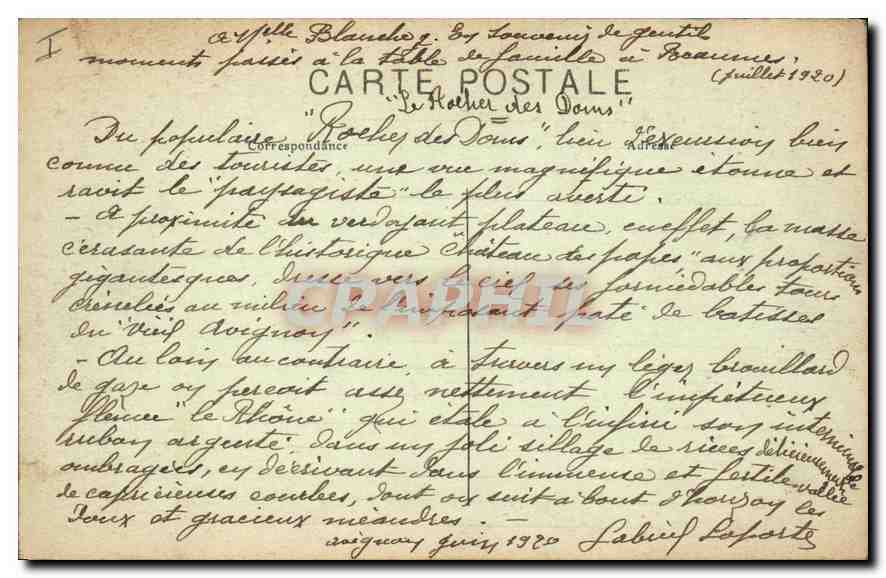 I
A Melle Blanche q. En souvenir de gentils
moments passés à la table de famille à Beaumes.
(juillet 1920)
CARTE POSTALE
"Le Rocher des Doms"
Correspondance
Adresse
Du populaire "Rocher des Doms", lieu d'excursion bien
connu des touristes, une vue magnifique étonne et
ravit le "paysagiste" le plus averti.
- A proximité du verdoyant plateau, en effet, la masse
écrasante de l'historique "Château des papes" aux proportions
gigantesques, dresse vers le ciel ses formidables tours
crénelées au milieu de l'imposant paté de batisses
du "Vieil Avignon".
- Au loin au contraire, à travers un léger brouillard
de gaze on percoit assez nettement l'impétueux
fleuve "le Rhône" qui étale à l'infini son interminable
ruban argenté, dans un joli sillage de rives délicieusement
ombragées, en décrivant dans l'immense et fertile vallée
de capricieuses courbes, dont on suit à bout d'horizon les
doux et gracieux méandres. -
Avignon juin 1920 Gabriel Laporte
CPAPHIL